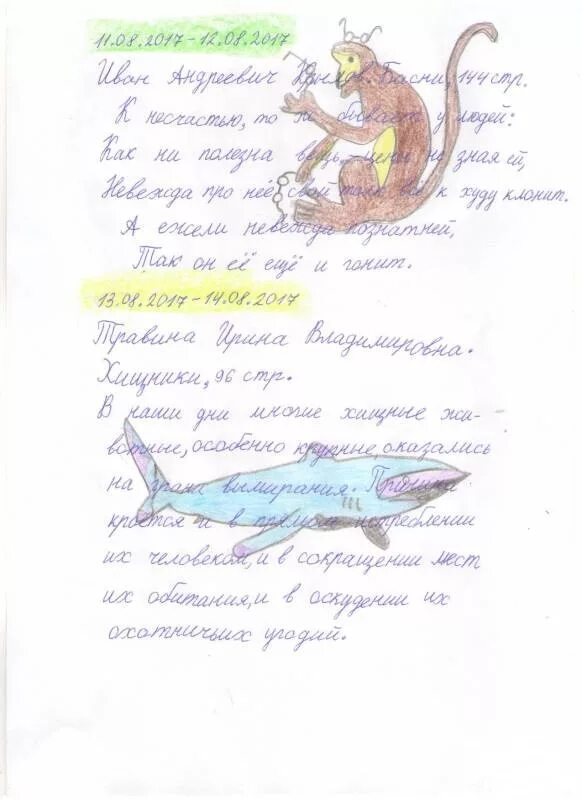 11.08.2017-12.08.2017
Иван Андреевич Крылов. Басни, 144 стр.
К несчастью, то ж бывает у людей:
Как ни полезна вещь, - цены не зная ей,
Невежда про неё свой толк всё к худу клонит.
А ежели невежда познатней,
Так он её ещё и гонит.
13.08.2017-14.08.2017
Травина Ирина Владимировна.
Хищники, 96 стр.
В наши дни многие хищные жи-
вотные, особенно крупные, оказались
на грани вымирания. Причина
кроется и в прямом истреблении
их человеком, и в сокращении мест
их обитания, и в оскудении их
охотничьих угодий.